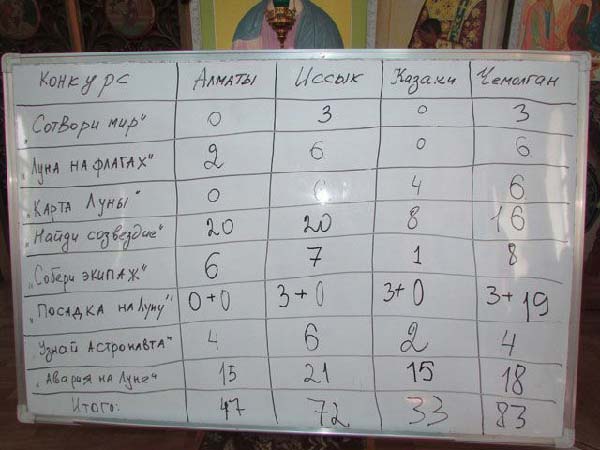 Конкурс Алматы Иссык Казаки Чемолган
"Сотвори мир" 0 3 0 3
"Луна на флагах" 2 6 0 6
"Карта Луны" 0 6 4 6
"Найди созвездие" 20 20 8 16
"Собери экипаж" 6 7 1 8
"Посадка на Луну" 0+0 3+0 3+0 3+19
"Узнай Астронавта" 4 6 2 4
"Авария на Луне" 15 21 15 18
Итого: 47 72 33 83